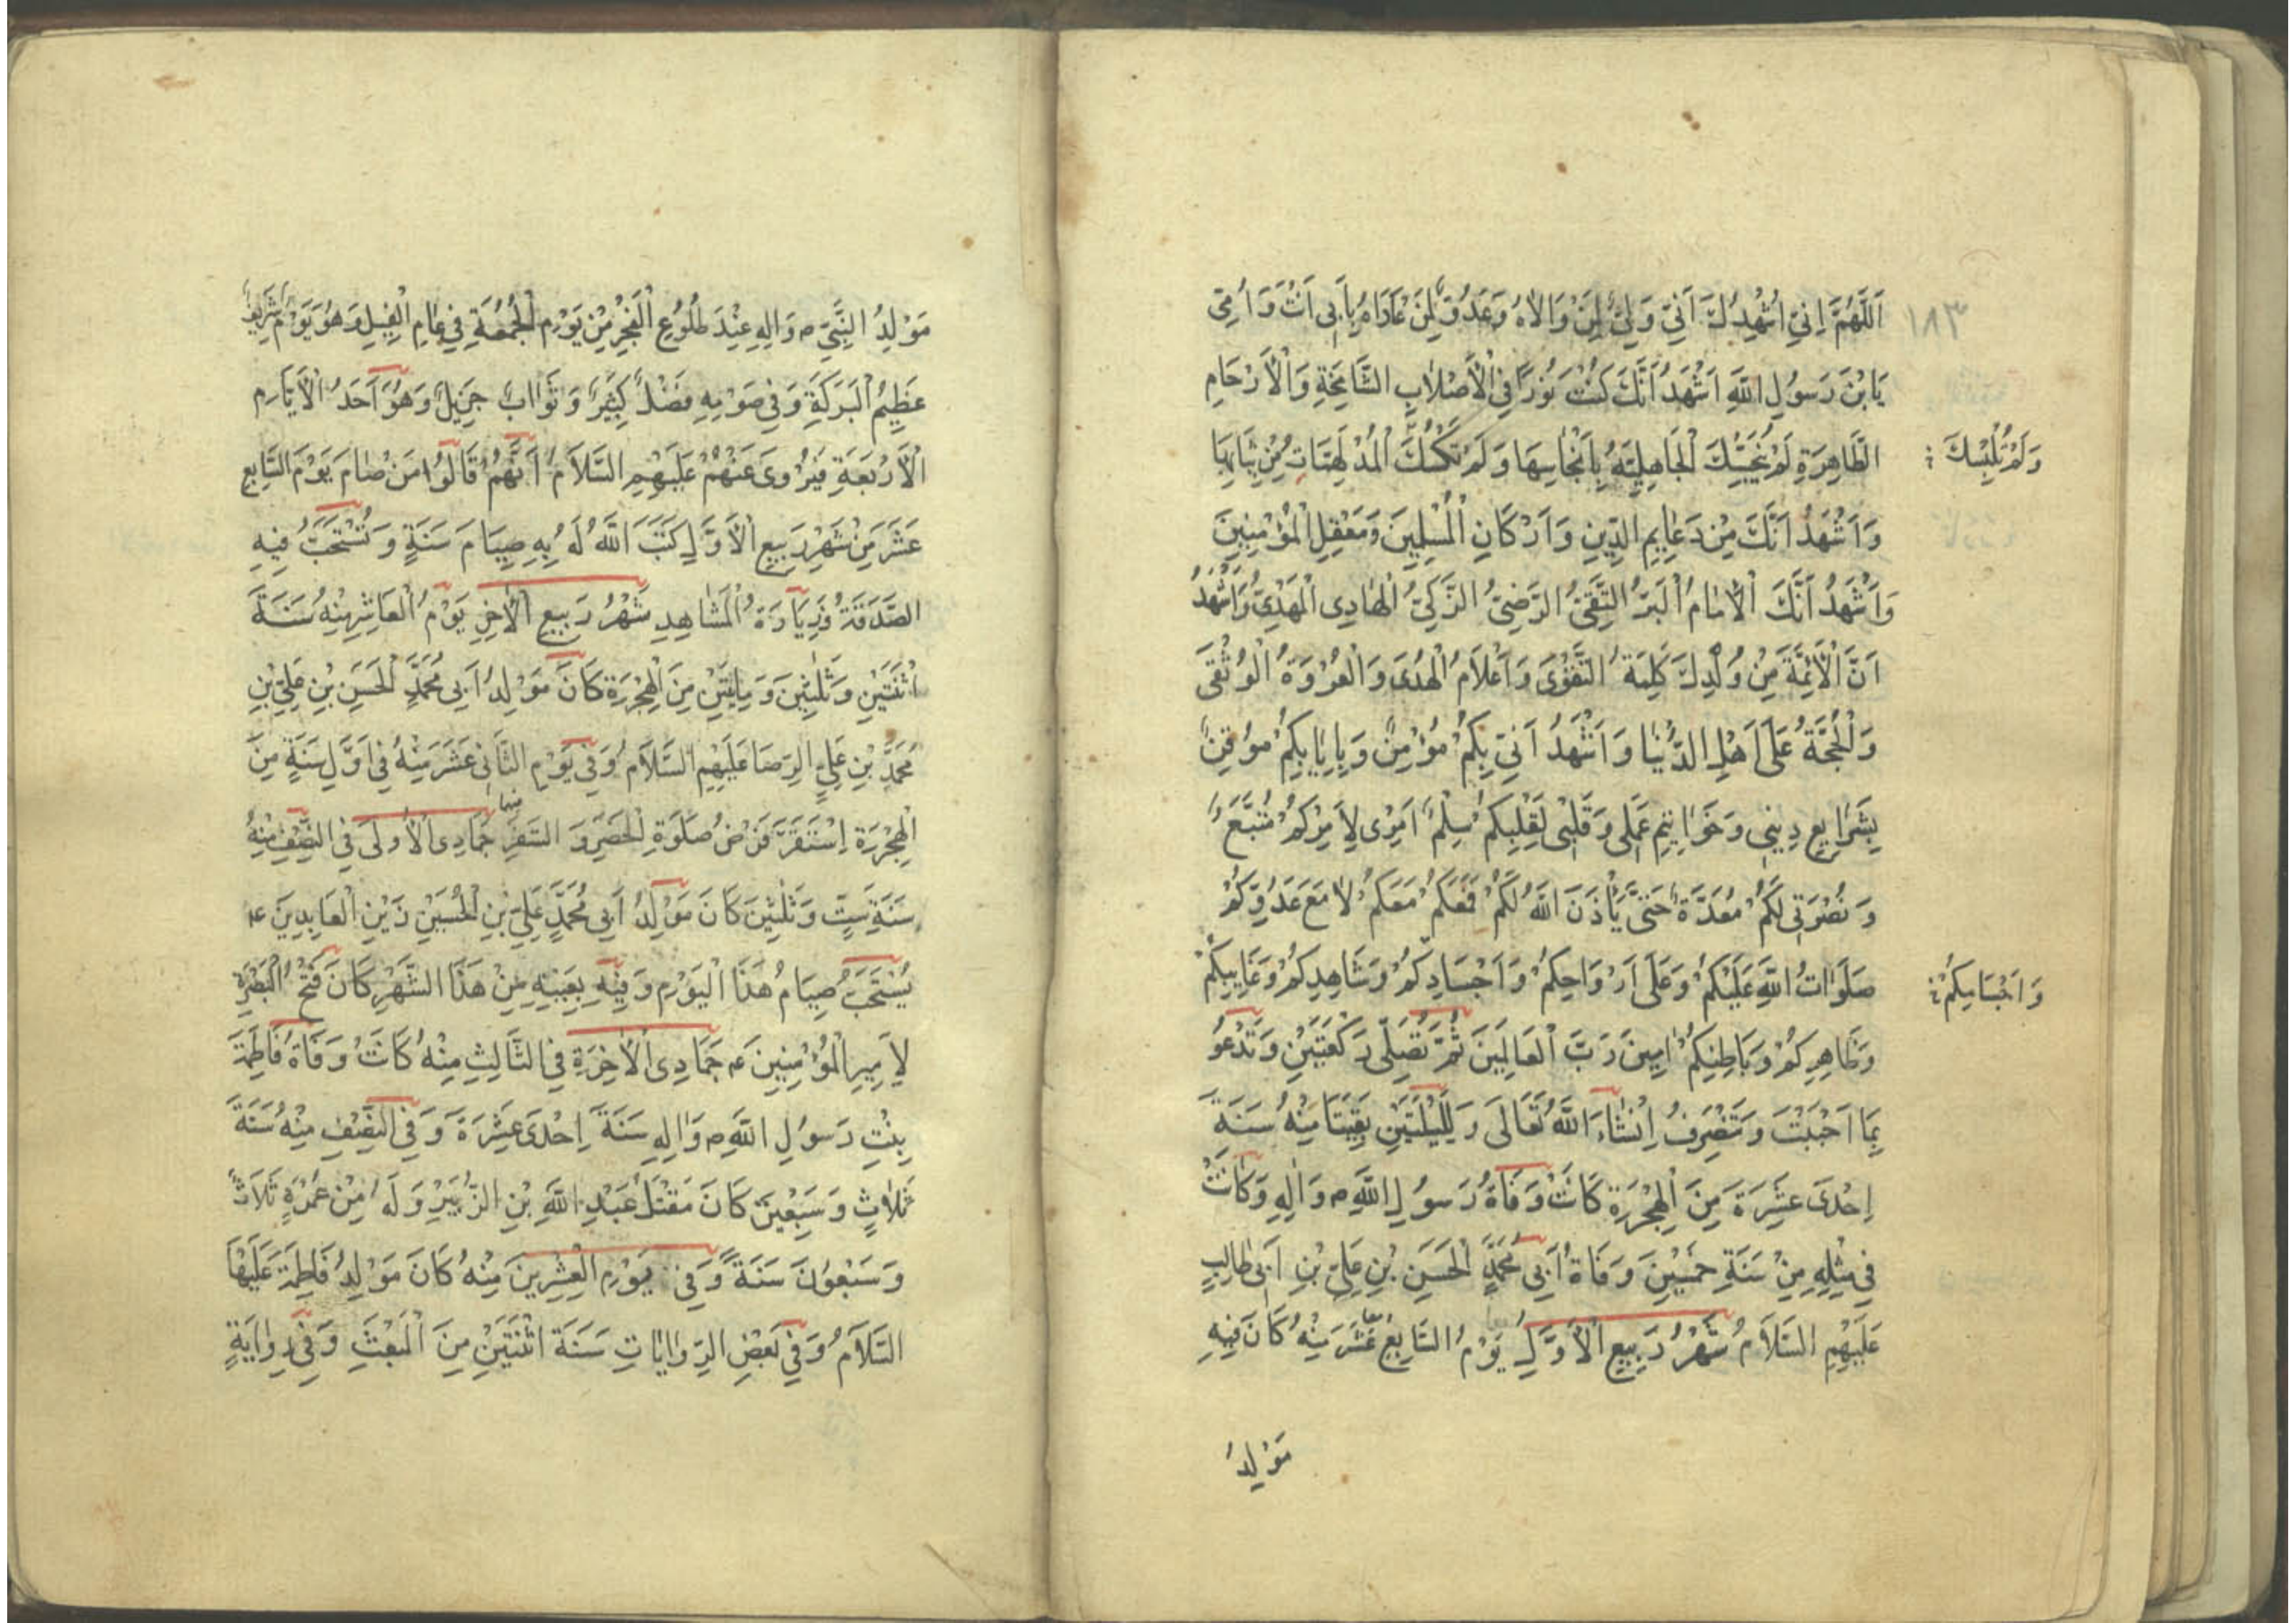 ١٨٣
اَللّٰهُمَّ اِنّي اُشْهِدُكَ اَنّي وَلِيٌّ لِمَنْ وَالاٰهُ وَعَدُوٌّ لِمَنْ عَادَاهُ بِاَبي اَنْتَ وَاُمّي
يَا بْنَ رَسُولِ اللّٰهِ اَشْهَدُ اَنَّكَ كُنْتَ نُورًا فِي الْاَصْلاٰبِ الشَّامِخَةِ وَالْاَرْحَامِ
الطَّاهِرَةِ لَمْ تُنَجِّسْكَ الْجَاهِلِيَّةُ بِاَنْجَاسِهَا وَلَمْ تَكْسُكَ الْمُدْلَهِمَّاتِ مِنْ ثِيَابِهَا
وَلَمْ تُلْبِسْكَ
وَاَشْهَدُ اَنَّكَ مِنْ دَعَايِمِ الدِّينِ وَاَرْكَانِ الْمُسْلِمِينَ وَمَعْقِلِ الْمُؤْمِنِينَ
وَاَشْهَدُ اَنَّكَ الْاِمَامُ الْبَرُّ التَّقِيُّ الرَّضِيُّ الزَّكِيُّ الْهَادِي الْمَهْدِيُّ وَاَشْهَدُ
اَنَّ الْاَئِمَّةَ مِنْ وُلْدِكَ كَلِمَةُ التَّقْوَى وَاَعْلَامُ الْهُدَى وَالْعُرْوَةُ الْوُثْقَى
وَالْحُجَّةُ عَلَى اَهْلِ الدُّنْيَا وَاَشْهَدُ اَنّي بِكُمْ مُؤْمِنٌ وَبِاِيَابِكُمْ مُوقِنٌ
بِشَرَايِعِ دِيني وَخَوَاتِيمِ عَمَلي وَقَلْبي لِقَلْبِكُمْ سِلْمٌ اَمْري لِاَمْرِكُمْ مُتَّبِعٌ
وَنُصْرَتي لَكُمْ مُعَدَّةٌ حَتَّى يَأْذَنَ اللّٰهُ لَكُمْ فَمَعَكُمْ مَعَكُمْ لاٰ مَعَ عَدُوِّكُمْ
صَلَوَاتُ اللّٰهِ عَلَيْكُمْ وَعَلَى اَرْوَاحِكُمْ وَاَجْسَادِكُمْ وَشَاهِدِكُمْ وَغَايِبِكُمْ
وَاَجْسَامِكُمْ
وَظَاهِرِكُمْ وَبَاطِنِكُمْ اٰمِينَ رَبَّ الْعَالَمِينَ ثُمَّ تُصَلّي رَكْعَتَيْنِ وَتَدْعُو
بِمَا اَحْبَبْتَ وَتَنْصَرِفُ اِنْشَاءَ اللّٰهُ تَعَالَى وَلِلَيْلَتَيْنِ بَقِيَتَا مِنْهُ سَنَةَ
اِحْدَى عَشْرَةَ مِنَ الْهِجْرَةِ كَانَتْ وَفَاةُ رَسُولِ اللّٰهِ ص وَاٰلِهِ وَكَانَتْ
في مِثْلِهِ مِنْ سَنَةِ خَمْسِينَ وَفَاةُ اَبي مُحَمَّدٍ الْحَسَنِ بْنِ عَلِيِّ بْنِ اَبي طَالِبٍ
عَلَيْهِمُ السَّلاٰمُ شَهْرُ رَبِيعِ الْاَوَّلِ يَوْمُ السَّابِعَ عَشَرَ مِنْهُ كَانَ فِيهِ
مَوْلِدُ
مَوْلِدُ النَّبِيِّ ص وَاٰلِهِ عِنْدَ طُلُوعِ الْفَجْرِ مِنْ يَوْمِ الْجُمُعَةِ في عَامِ الْفِيلِ وَهُوَ يَوْمٌ شَرِيفٌ
عَظِيمُ الْبَرَكَةِ وَفي صَوْمِهِ فَضْلٌ كَثِيرٌ وَثَوَابٌ جَزِيلٌ وَهُوَ اَحَدُ الْاَيَّامِ
الْاَرْبَعَةِ فَيُرْوَى عَنْهُمْ عَلَيْهِمُ السَّلاَمُ اَنَّهُمْ قَالُوا مَنْ صَامَ يَوْمَ السَّابِعَ
عَشَرَ مِنْ شَهْرِ رَبِيعِ الْاَوَّلِ كَتَبَ اللّٰهُ لَهُ بِهِ صِيَامَ سَنَةٍ وَتُسْتَحَبُّ فِيهِ
الصَّدَقَةُ وَزِيَارَةُ الْمَشَاهِدِ شَهْرُ رَبِيعِ الْاٰخِرِ يَوْمُ الْعَاشِرِ مِنْهُ سَنَةَ
اثْنَتَيْنِ وَثَلٰثِينَ وَمِايَتَيْنِ مِنَ الْهِجْرَةِ كَانَ مَوْلِدُ اَبي مُحَمَّدٍ الْحَسَنِ بْنِ عَلِيِّ بْنِ
مُحَمَّدِ بْنِ عَلِيٍّ الرِّضَا عَلَيْهِمُ السَّلاَمُ وَفي يَوْمِ الثَّانِي عَشَرَ مِنْهُ في اَوَّلِ سَنَةٍ مِنَ
الْهِجْرَةِ اِسْتَقَرَّ فَرْضُ صَلَوةِ الْحَضَرِ وَالسَّفَرِ جُمَادِي الْاُولَى فِي النِّصْفِ مِنْهُ
سَنَةِ سِتٍّ وَثَلٰثِينَ كَانَ مَوْلِدُ اَبي مُحَمَّدٍ عَلِيِّ بْنِ الْحُسَيْنِ زَيْنِ الْعَابِدِينَ ع
يُسْتَحَبُّ صِيَامُ هَذَا الْيَوْمِ وَفِيهِ بِعَيْنِهِ مِنْ هَذَا الشَّهْرِ كَانَ فَتْحُ الْبَصْرَةِ
لِاَمِيرِ الْمُؤْمِنِينَ ع جُمَادِي الْاٰخِرَةِ فِي الثَّالِثِ مِنْهُ كَانَتْ وَفَاةُ فَاطِمَةَ
بِنْتِ رَسُولِ اللّٰهِ ص وَاٰلِهِ سَنَةَ اِحْدَى عَشْرَةَ وَفِي النِّصْفِ مِنْهُ سَنَةَ
ثَلاٰثٍ وَسَبْعِينَ كَانَ مَقْتَلُ عَبْدِ اللّٰهِ بْنِ الزُّبَيْرِ وَلَهُ مِنْ عُمْرِهِ ثَلاَثٌ
وَسَبْعُونَ سَنَةً وَفي يَوْمِ الْعِشْرِينَ مِنْهُ كَانَ مَوْلِدُ فَاطِمَةَ عَلَيْهَا
السَّلاَمُ وَفي بَعْضِ الرِّوَايَاتِ سَنَةَ اثْنَتَيْنِ مِنَ الْمَبْعَثِ وَفي رِوَايَةٍ